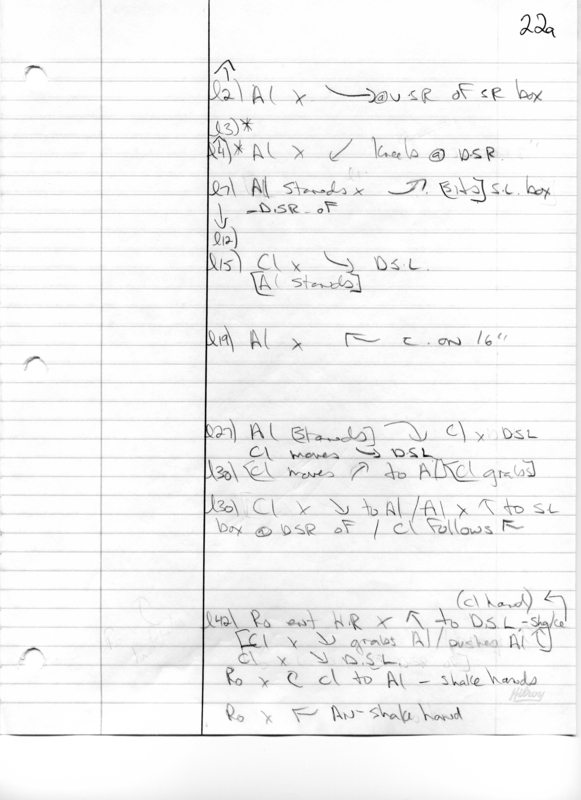 22a
↑
l2) Al x → @ USR OF SR box
l3)*
l4)* Al x ↙ kneels @ DSR.
l7) Al stands x ↗ [sits] S.L. box
↓ - DSR. of
l12)
l15) Cl x ↘ D.S.L.
[Al stands]
l19) Al x ↖ C. ON 16"
l27) Al [stands] ↘ Cl x DSL
Cl moves → DSL
l30) [Cl moves ↗ to Al] [Cl grabs]
l30) Cl x ↘ to Al / Al x ↑ to SL
box @ DSR of / Cl Follows ↖
(Cl hand) ↰
l42) Ro ent HR x ↖ to DSL - shake
[Cl x ↘ grabs Al / pushes Al ↑]
Cl x ↘ D.S.L.
Ro x C Cl to Al - shake hands
Hilroy
Ro x ↖ AN - shake hand